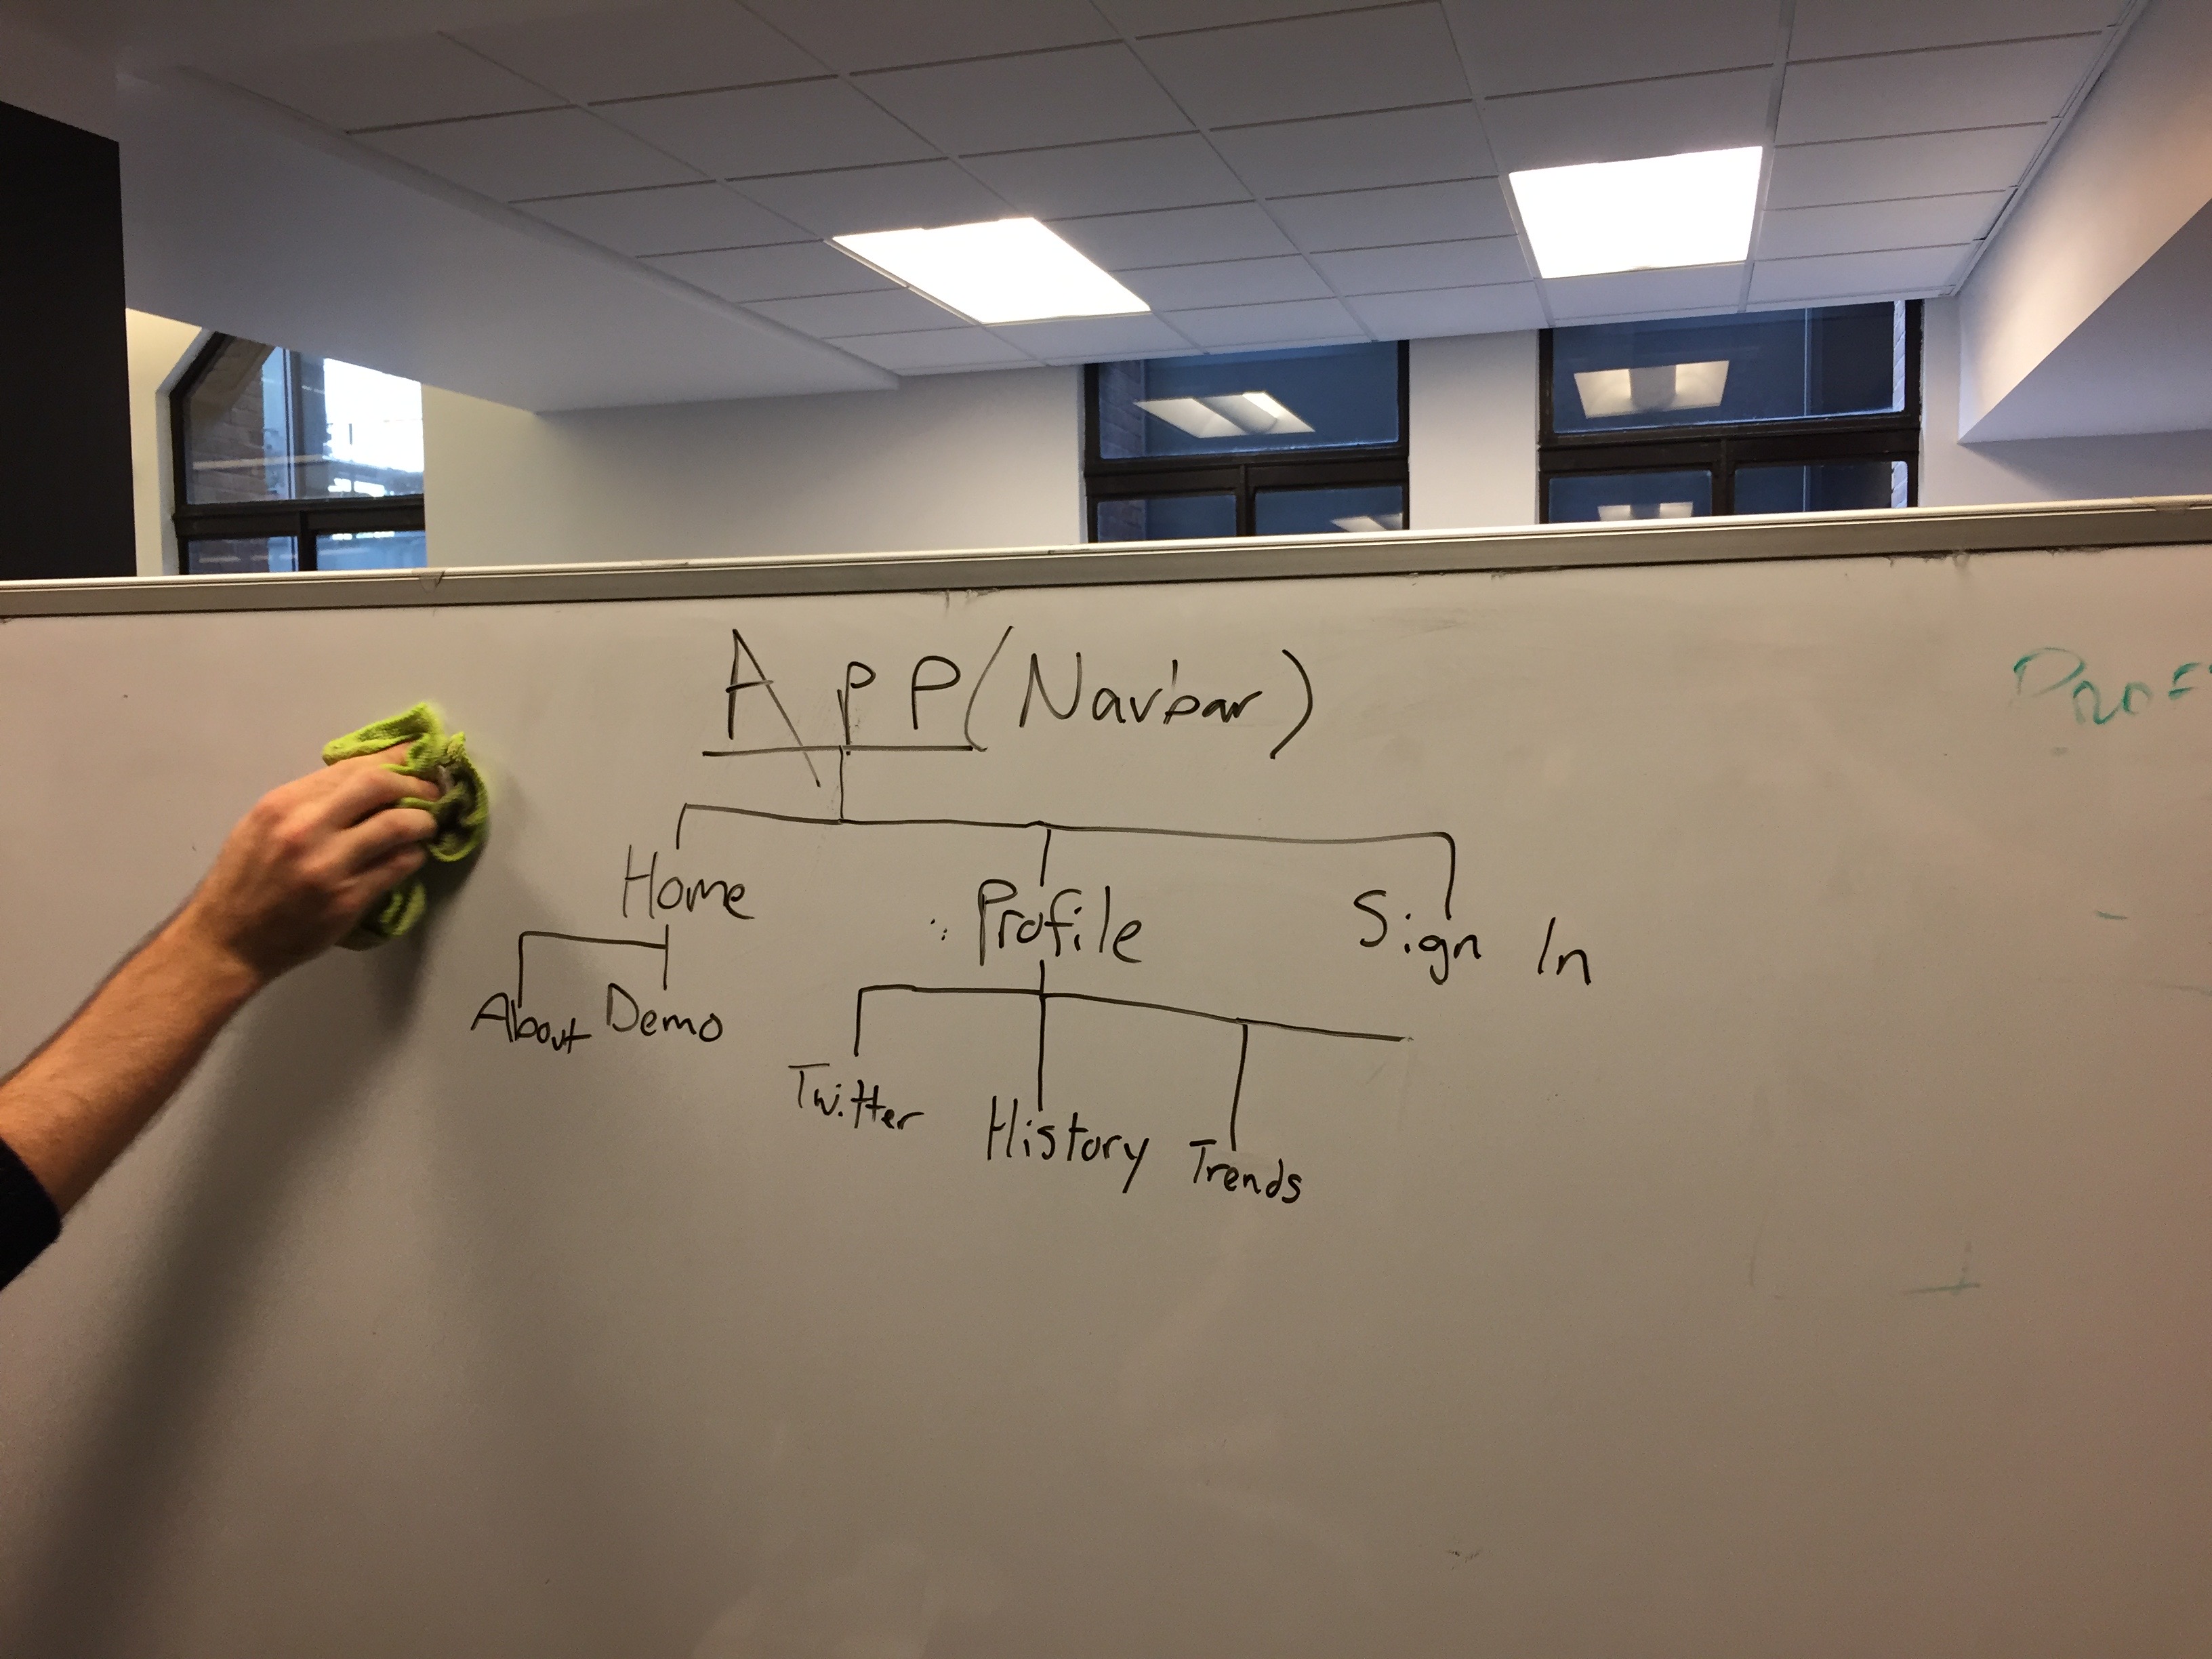 App (Navbar)
Home
Profile
Sign In
About Demo
Twitter
History
Trends